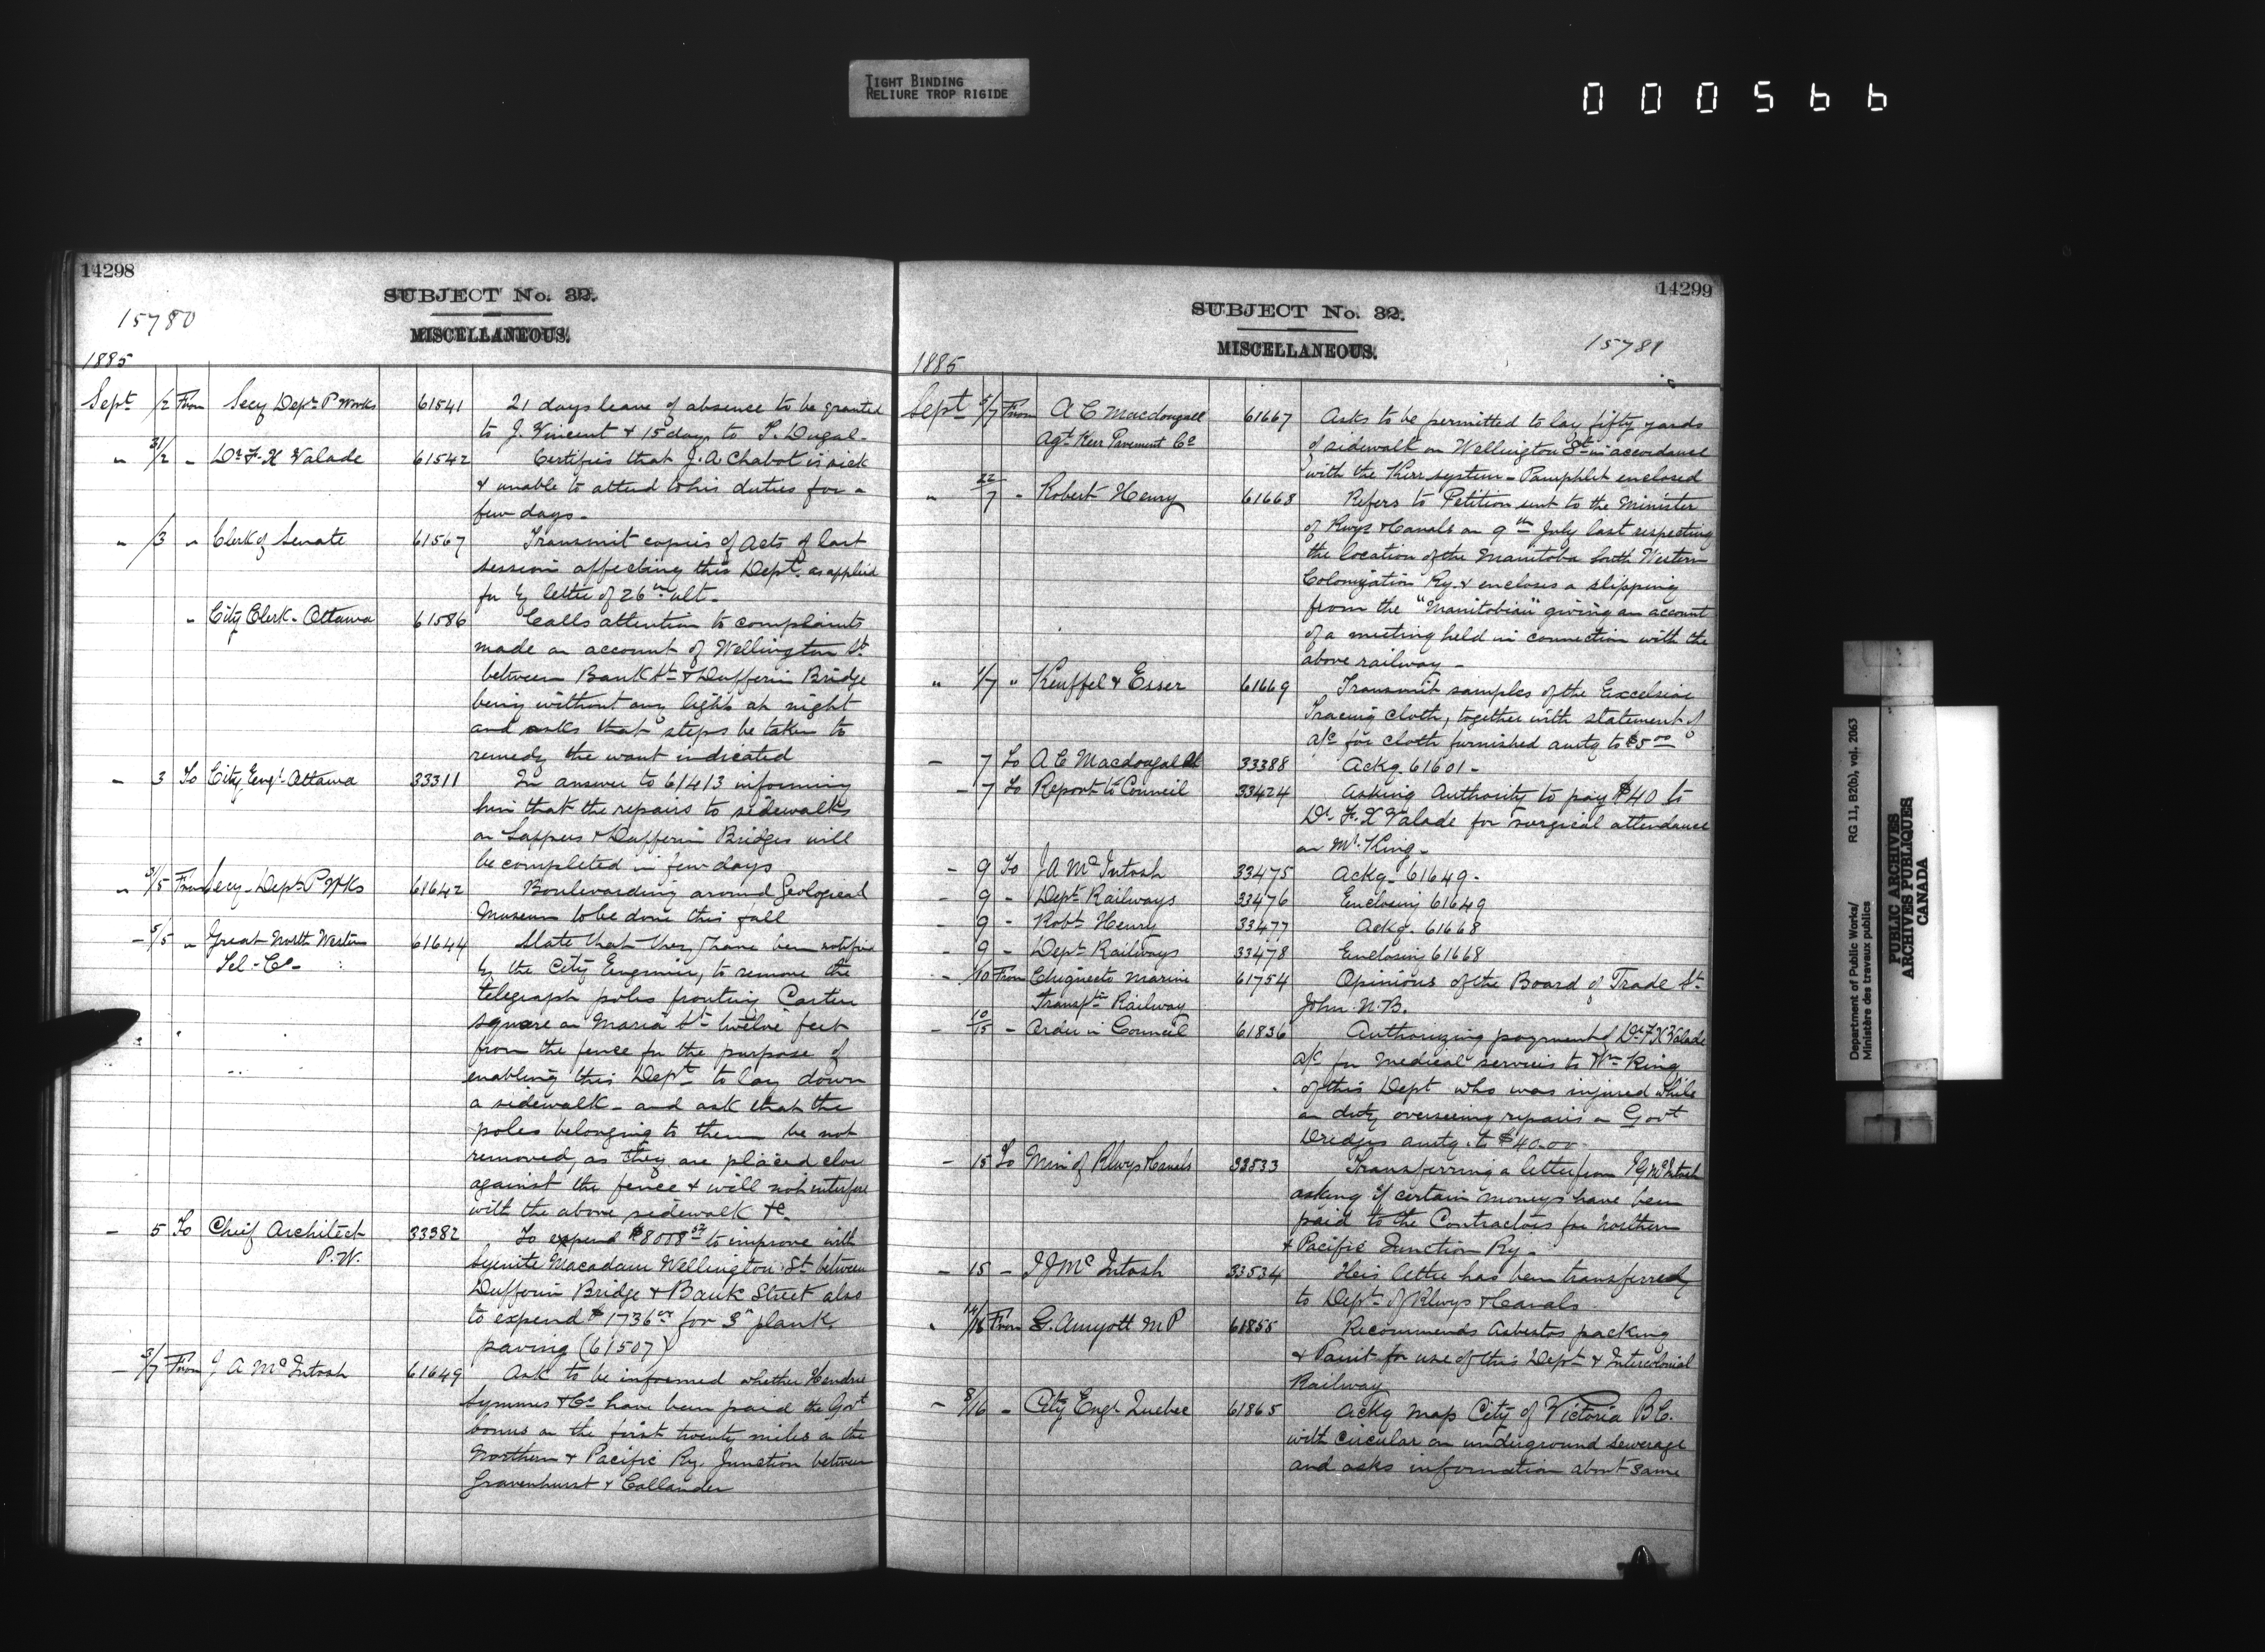 TIGHT BINDING
RELIURE TROP RIGIDE
000566
14298
SUBJECT No. 32.
15780
MISCELLANEOUS.
1885
Sept 1/2 From Secy Dept P Works 61541 21 days leave of absence to be granted
to J. Vincent & 15 days to S. Dugal.
" 31/2 " Dr F. X Valade 61542 Certifies that J. A Chabot is sick
& unable to attend to his duties for a
few days.
" /3 " Clerk of Senate 61567 Transmit copies of Acts of last
session affecting this Dept. as applied
for by letter of 26th ult.
" City Clerk - Ottawa 61586 Calls attention to complaints
made on account of Wellington St.
between Bank St & Dufferin Bridge
being without any lights at night
and asks that steps be taken to
remedy the want indicated
" 3 To City Engr. Ottawa 33311 In answer to 61413 informing
him that the repairs to sidewalks
on Sappers & Dufferin Bridges will
be completed in few days
" 3/5 From Secy. Dept P Wks 61642 Boulevarding around Geological
Museum to be done this fall
- 5/5 " Great North Western 61644 State that they have been notified
Tel - Co - by the City Engineer, to remove the
telegraph poles fronting Cartier
square on Maria St twelve feet
from the fence for the purpose of
enabling this Dept to lay down
a sidewalk - and ask that the
poles belonging to them be not
removed, as they are placed close
against the fence & will not interfere
with the above sidewalk &c.
- 5 To Cheif Architect 33382 To expend $8008 52 to improve with
P. W. Syenite Macadam Wellington St between
Dufferin Bridge & Bank Street also
to expend $1736 for 3" plank
paving (61507)
- 3/7 From J A McIntosh 61649 Ask to be informed whether Hendrie
Symmes & Co have been paid the Govt
bonus on the first twenty miles on the
Northern & Pacific Ry. Junction between
Gravenhurst & Callander
14299
SUBJECT No. 32.
15781
MISCELLANEOUS.
1885
Sept 5/7 From A C Macdougall 61667 Asks to be permitted to lay fifty yards
Agt Kerr Pavement Co of sidewalk on Wellington St in accordance
with the Kerr system - Pamphlet enclosed
" 22/7 " Robert Henry 61668 Refers to Petition sent to the Minister
of Rwys & Canals on 9th July last respecting
the location of the Manitoba South Western
Colonization Ry. & encloses a slipping
from the "Manitobian" giving an account
of a meeting held in connection with the
above railway -
" 1/7 " Keuffel & Esser 61669 Transmit samples of the Excelsior
Tracing cloth, together with statement of
a/c for cloth furnished amtg to $5 00
- 7 To A C Macdougall 33388 Ackg. 61601 -
- 7 To Report to Council 33424 Asking Authority to pay $40 to
Dr F. X Valade for surgical attendance
on Mr. King -
- 9 To J A McIntosh 33475 Ackg. 61649 -
- 9 - Dept Railways 33476 Enclosing 61649
- 9 - Robt Henry 33477 Ackg. 61668
- 9 - Dept Railways 33478 Enclosing 61668
- /10 From Chignecto Marine 61754 Opinions of the Board of Trade St
Transpt Railway John. N.B.
- 10/15 - Order in Council 61836 Authorizing payment of Dr F X Valade
a/c for medical services to Wm King
of this Dept who was injured while
on duty overseeing repairs on Govt
Dredges amtg. to $40.00
- 15 To Min of Rlwys & Canals 33533 Transferring a letter from J G McIntosh
asking if certain moneys have been
paid to the Contractors for Northern
& Pacific Junction Ry -
- 15 - J J McIntosh 33534 His letter has been transferred
to Dept of Rlwys & Canals
" 14/16 From G. Amyott M P 61855 Recommends Asbestos packing
& Paint for use of this Dept & Intercolonial
Railway
- 8/16 - City Engr Quebec 61865 Ackg map City of Victoria B C.
with circular on underground sewerage
and asks information about same
Department of Public Works/ RG 11, B2(b), vol. 2063
Ministère des travaux publics
PUBLIC ARCHIVES
ARCHIVES PUBLIQUES
CANADA